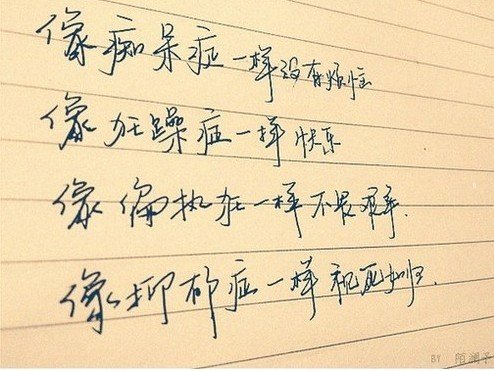 像痴呆症一样没有烦恼
像狂躁症一样快乐
像偏执狂一样不畏艰辛.
像抑郁症一样视死如归.
BY 陌澜子